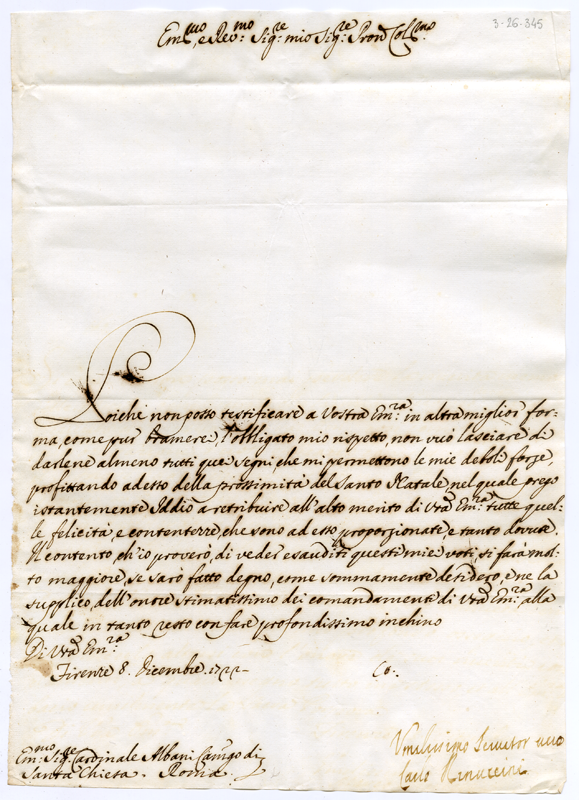 Em.mo, e Rev.mo Sig.re mio Sig.re Pron Col.mo
3-26-345
Poiche non posso testificare a Vostra Em.za in altra miglior for-
ma, come pur bramerei, l'obbligato mio rispetto, non vuò lasciare di
darlene almeno tutti quei segni che mi permettono le mie deboli forze,
profittando adesso della prossimità del Santo Natale, nel quale prego
istantemente Iddio a retribuire all'alto merito di Vra Em.za tutte quel-
le felicità, e contentezze, che sono ad esso proporzionate, e tanto dovute.
Il contento, ch'io proverò, di veder esauditi questi miei voti, si farà mol-
to maggiore, se sarò fatto degno, come sommamente desidero, e ne la
supplico, dell'onore stimatissimo dei comandamenti di Vra Em.za alla
quale in tanto resto con fare profondissimo inchino
Di Vra Em.za
Firenze 8. Dicembre. 1722
Em.mo Sig.re Cardinale Albani Camgo di
Santa Chiesa. Roma.
Umilissimo Servitor vero
Carlo Rinuccini